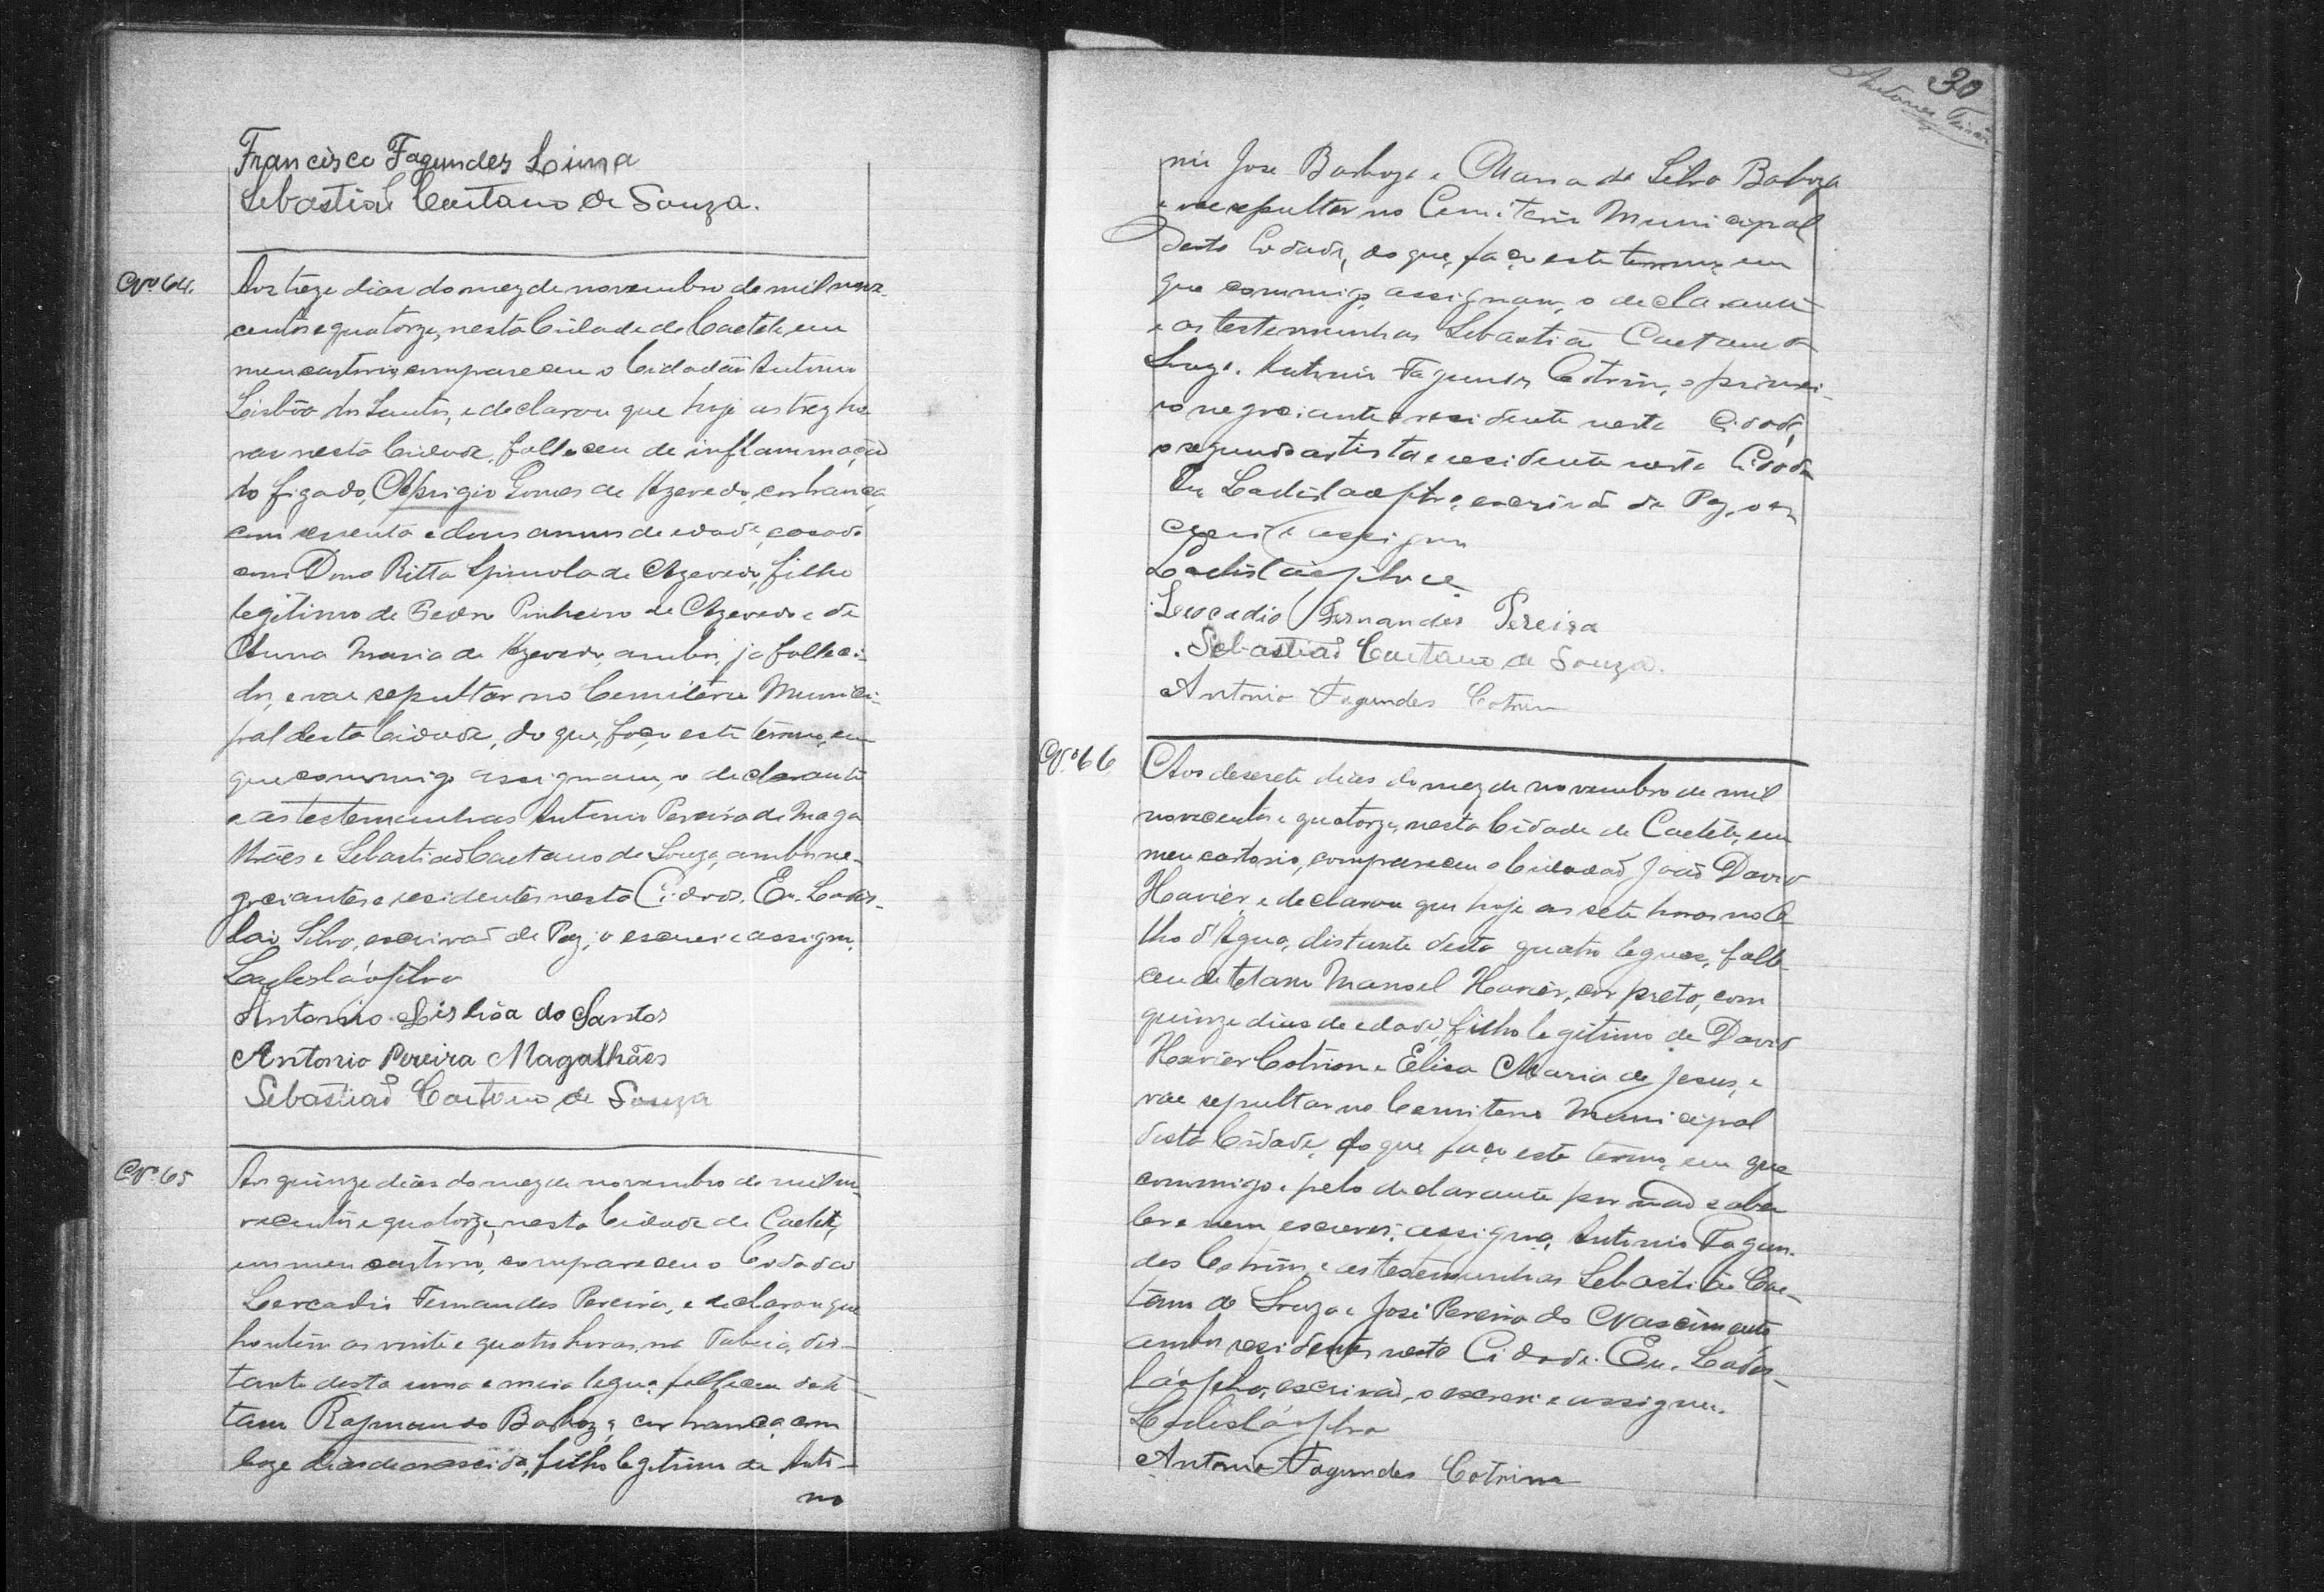 Francisco Fagundes Lima
Sebastião Caetano de Souza.
Nº 64.
Aos treze dias do mez de novembro de mil nove-
centos e quatorze, nesta Cidade de Caeteté, em
meu cartorio, compareceu o Cidadão Antonio
Lisbôa dos Santos, e declarou que hoje as trez ho
ras nesta Cidade, falleceu de inflammação
do figado, Aprigio Gomes de Azevedo, cor branca,
com sessenta e dous annos de edade, casado
com Dona Ritta Spinola de Azevedo, filho
legitimo de Pedro Pinheiro de Azevedo e de
Anna Maria de Azevedo, ambos já falleci-
dos, e vae sepultar no Cemiterio Munici-
pal desta Cidade, do que, faço este termo, em
que commigo assignam, o declarante
e as testemunhas Antonio Pereira de Maga
lhães e Sebastião Caetano de Souza, ambos ne-
gociantes e residentes nesta Cidade. Eu. Ladis-
láo Silva, escrivão de Paz, o escrevi e assigno.
Ladisláo Silva
Antonio Lisbôa do Santos
Antonio Pereira Magalhães
Sebastião Caetano de Souza
Nº 65
Aos quinze dias do mez de novembro de mil no-
vecentos e quatorze, nesta Cidade de Caeteté,
em meu cartorio, compareceu o Cidadão
Leocadio Fernandes Pereira, e declarou que
hontem as vinte e quatro horas, na dis-
tante desta uma e meia legua, falleceu de te-
tano Raymundo Barboza, cor branca, com
doze dias de nascido, filho legitimo de Anto-
nio
30
nio José Barboza e Maria da Silva Baboza
e vae sepultar no Cemiterio Municipal
desta Cidade, do que, faço este termo, em
que commigo, assignam, o declarante
e as testemunhas Sebastião Caetano de
Souza. Antonio Fagundes Cotrim, o primei-
ro negociante e residente nesta Cidade,
o segundo artista e residente nesta Cidade
Eu Ladisláo Silva, escrivão de Paz, o es
crevi e assigno
Ladisláo Silva
Leocadio Fernandes Pereira
Sebastião Caetano de Souza.
Antonio Fagundes Cotrim
Nº 66
Aos desesete dias do mez de novembro de mil
novecentos e quatorze, nesta Cidade de Caeteté, em
meu cartorio, compareceu o Cidadão João David
Xavier, e declarou que hoje as sete horas no O
lho d'Agua, distante desta quatro leguas, falle-
ceu de tetano Manoel Xavier, cor preto, com
quinze dias de edade, filho legitimo de David
Xavier Cotrim e Elisa Maria de Jesus, e
vae sepultar no Cemiterio Municipal
desta Cidade, do que faço este termo, em que
commigo e pelo declarante por não saber
ler e nem escrever, assigna, Antonio Fagun-
des Cotrim, e as testemunhas Sebastião Cae-
tano de Souza e José Pereira do Nascimento
ambos residentes nesta Cidade. Eu. Ladis-
láo Silva, escrivão, o escrevi e assigno.
Ladisláo Silva
Antonio Fagundes Cotrim